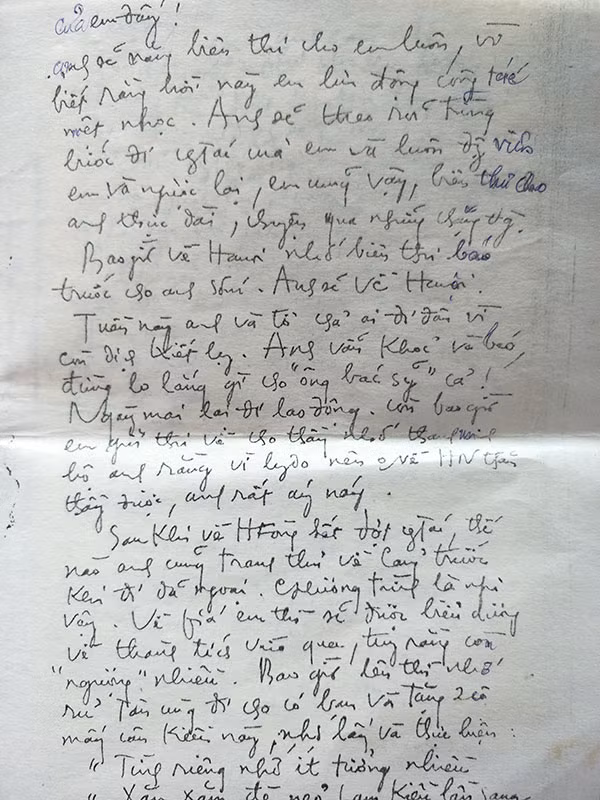 của em đấy!
Anh sẽ năng biên thư cho em luôn, vì
biết rằng hồi này em lưu động công tác
mệt nhọc. Anh sẽ theo rõi từng
bước đi ctác của em và luôn đg viên
em và ngược lại, em cũng vậy, biên thư cho
anh thúc đẩy, chuyện qua những chặng đg.
Bao giờ về Hanoi nhớ biên thư báo
trước cho anh sớm. Anh sẽ về Hanoi.
Tuần này anh và tổ chả ai đi đâu vì
còn dịch kiết lỵ. Anh vẫn khoẻ và béo,
đừng lo lắng gì cho "ông bác sỹ" cả!
Ngày mai lại đi lao động. Còn bao giờ
em gửi thư về cho thầy nhớ thanh minh
hộ anh rằng vì lý do nên 0 về HN thăm
thầy được, anh rất áy náy.
Sau khi về Hưng hết đợt ctác, thế
nào anh cũng tranh thủ về trước
khi đi dã ngoại. Chương trình là như
vậy. Về em thì sẽ được biểu dương
về thành tích vừa qua, tuy rằng còn
"ngượng" nhiều. Bao giờ lên thì nhớ
rủ Tân cùng đi cho có bạn và tặng 2 cô
mấy câu Kiều này, nhớ lấy và thực hiện:
"Tình riêng nhớ ít tưởng nhiều
"Xăm xăm đè nẻo Lam Kiều lần sang